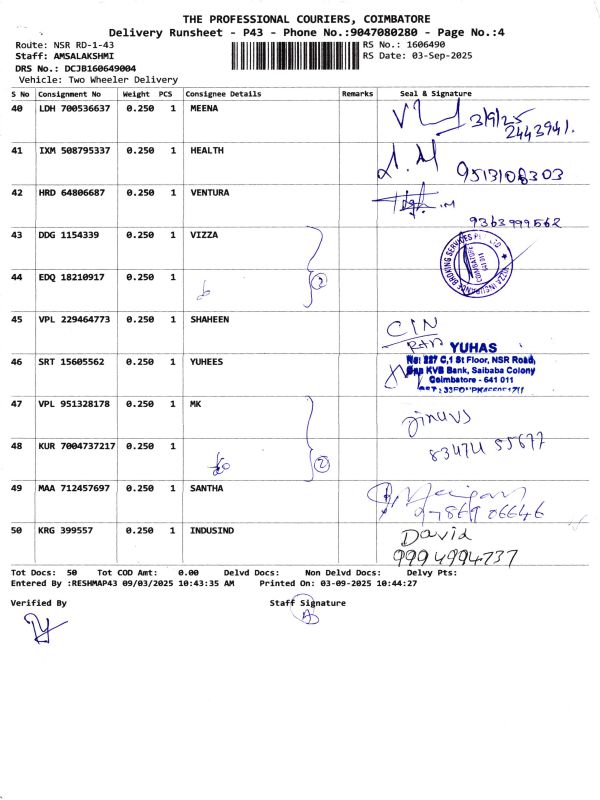 THE PROFESSIONAL COURIERS, COIMBATORE
Delivery Runsheet - P43 - Phone No.:9047080280 - Page No.:4
Route: NSR RD-1-43
RS No.: 1606490
Staff: AMSALAKSHMI
RS Date: 03-Sep-2025
DRS No.: DCJB160649004
Vehicle: Two Wheeler Delivery
S No Consignment No Weight PCS Consignee Details Remarks Seal & Signature
40 LDH 700536637 0.250 1 MEENA
3/9/25
2443941.
41 IXM 508795337 0.250 1 HEALTH
9513108303
42 HRD 64806687 0.250 1 VENTURA
9363999562
43 DDG 1154339 0.250 1 VIZZA
VIZZA INSURANCE BROKING SERVICES
COIMBATORE
641 011
44 EDQ 18210917 0.250 1
2
45 VPL 229464773 0.250 1 SHAHEEN
CIN
46 SRT 15605562 0.250 1 YUHEES
YUHAS
No: 227 C,1 St Floor, NSR Road,
KVB Bank, Saibaba Colony
Coimbatore - 641 011
47 VPL 951328178 0.250 1 MK
48 KUR 7004737217 0.250 1
2
83474 55677
49 MAA 712457697 0.250 1 SANTHA
50 KRG 399557 0.250 1 INDUSIND
David
9994994737
Tot Docs: 50 Tot COD Amt: 0.00 Delvd Docs: Non Delvd Docs: Delvy Pts:
Entered By :RESHMAP43 09/03/2025 10:43:35 AM Printed On: 03-09-2025 10:44:27
Verified By Staff Signature